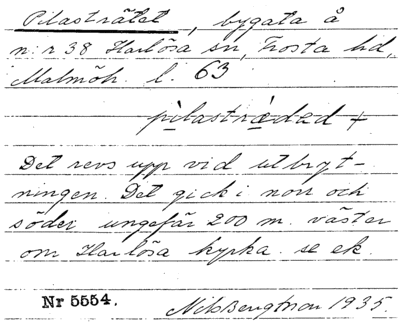 Pilasträtet, bygata å
n:r 38 Harlösa sn, Frosta hd,
Malmöh. l. 63
pilasträded +
Det revs upp vid utbryt-
ningen. Det gick i norr och
söder ungefär 200 m. väster
om Harlösa kyrka. se ek.
Nr 5554.
Nils Bengtsson 1935.